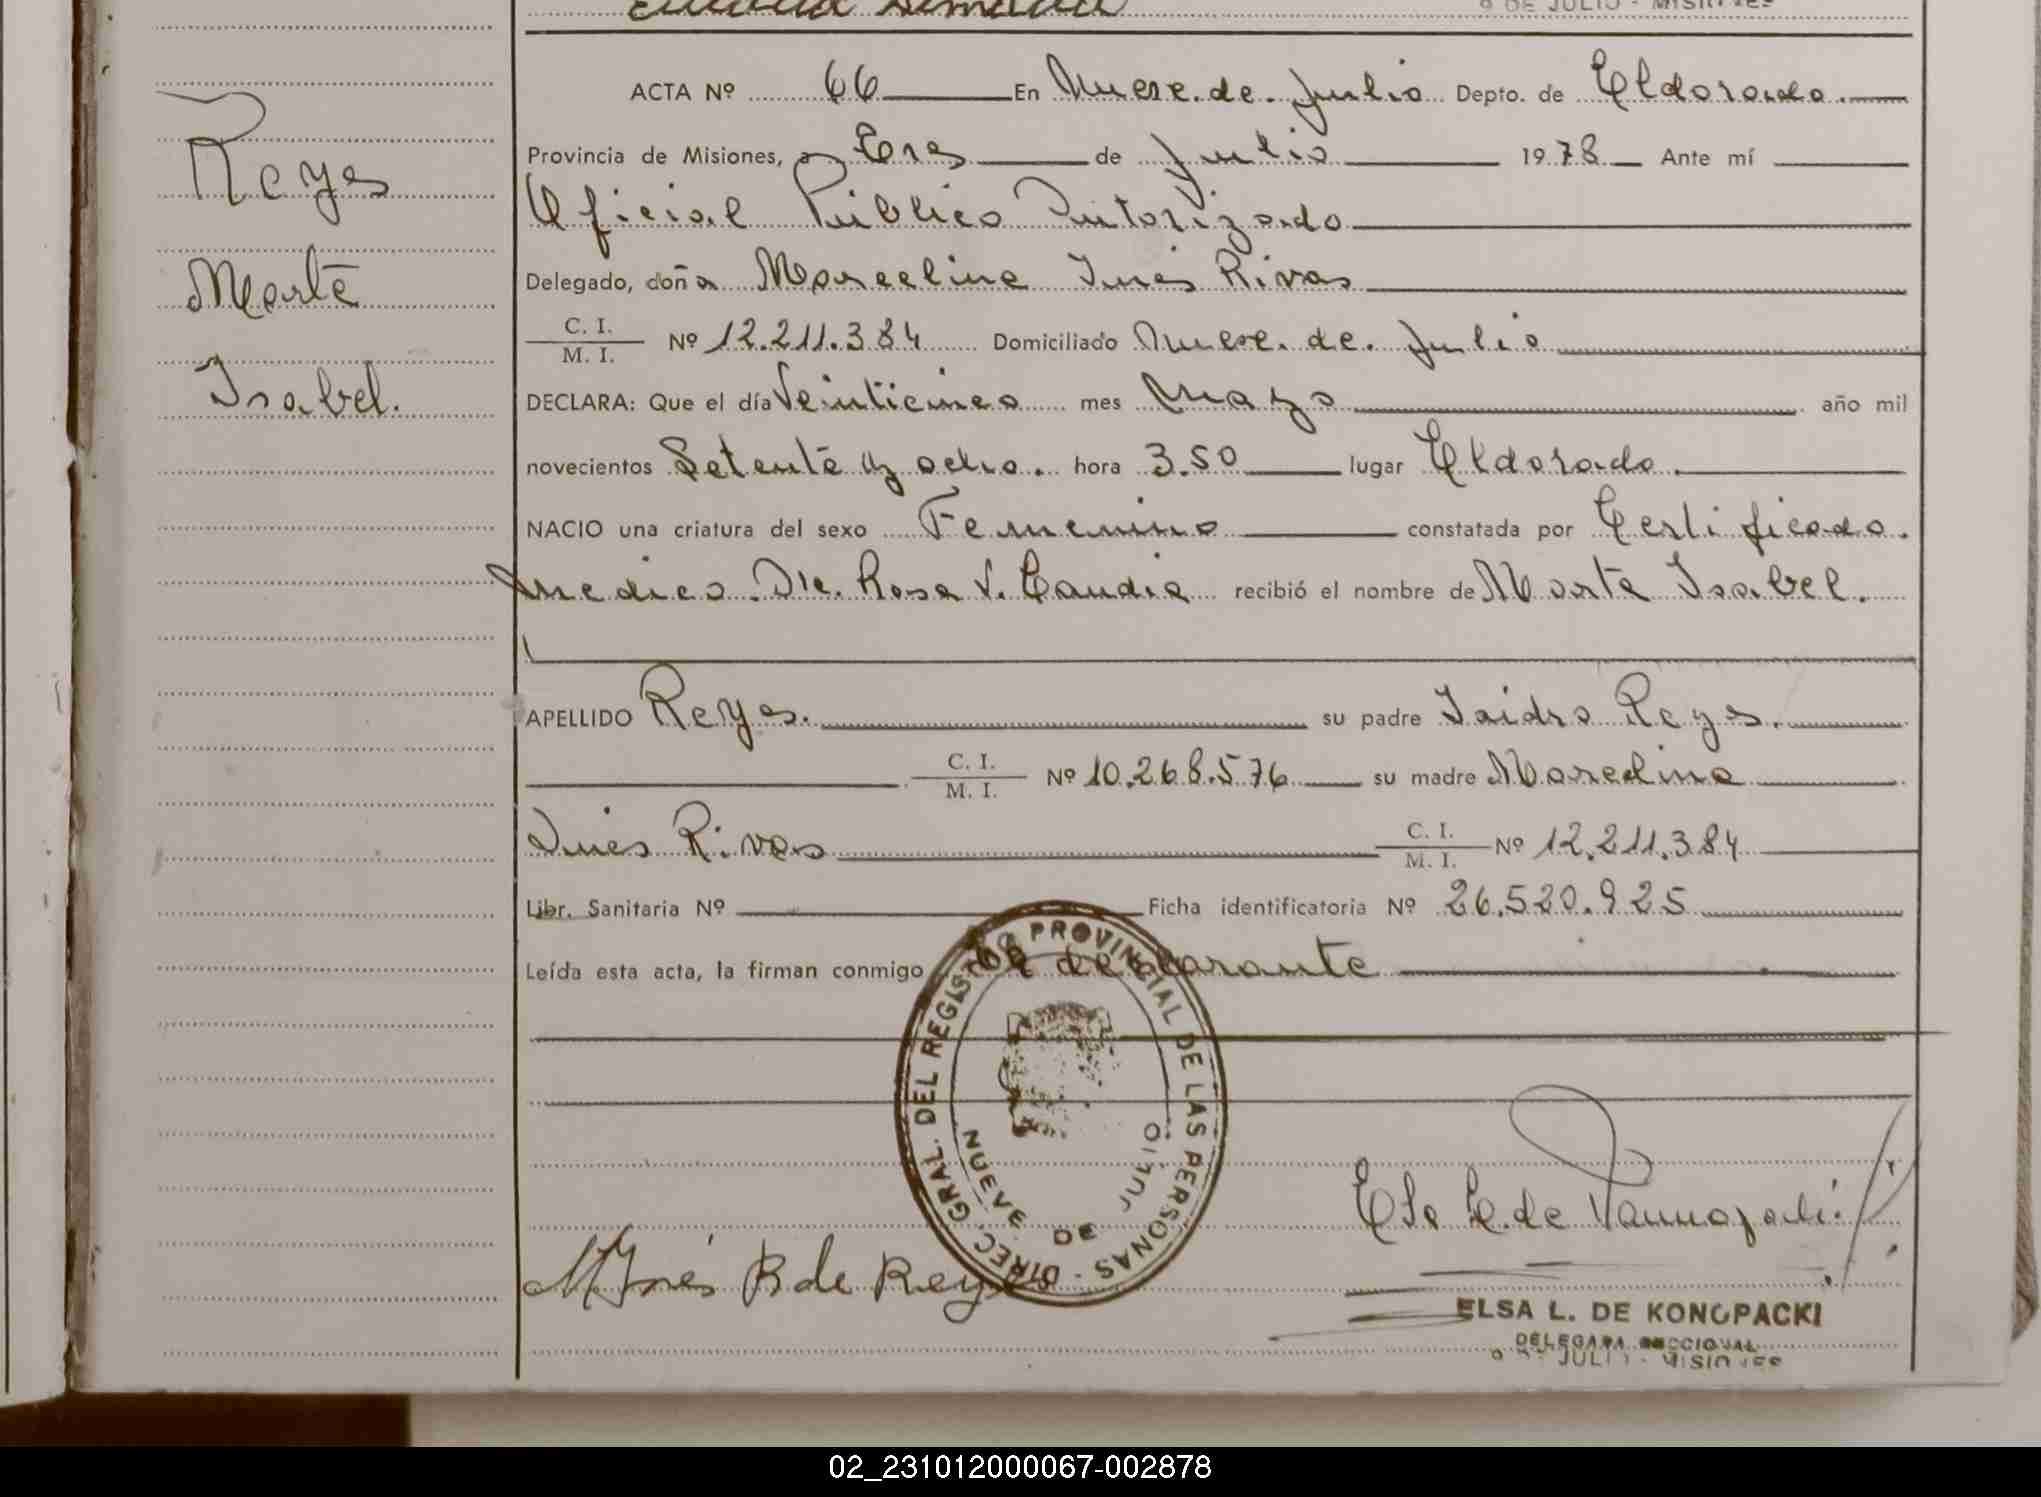 9 DE JULIO - MISIONES
Reyes
Marta
Isabel.
ACTA Nº 66 En Nueve de Julio Depto. de Eldorado.
Provincia de Misiones, a Tres de Julio 1978 Ante mí
Oficial Público Autorizado
Delegado, doña Marcelina Inés Rivas
C. I.
M. I. Nº 12.211.384 Domiciliado Nueve de Julio
DECLARA: Que el día Veinticinco mes Mayo año mil
novecientos Setenta y ocho. hora 3.50 lugar Eldorado.
NACIO una criatura del sexo Femenino constatada por Certificado.
Medico. Dra. Rosa V. Candia recibió el nombre de Marta Isabel.
APELLIDO Reyes. su padre Isidro Reyes.
C. I.
M. I. Nº 10.268.576 su madre Marcelina
Inés Rivas C. I.
M. I. Nº 12.211.384
Libr. Sanitaria Nº Ficha identificatoria Nº 26.520.925
Leída esta acta, la firman conmigo la declarante
DIREC. GRAL. DEL REGISTRO PROVINCIAL DE LAS PERSONAS -
NUEVE DE JULIO
M Inés R de Reyes
ELSA L. DE KONOPACKI
DELEGADA SECCIONAL
9 DE JULIO - MISIONES
02_231012000067-002878